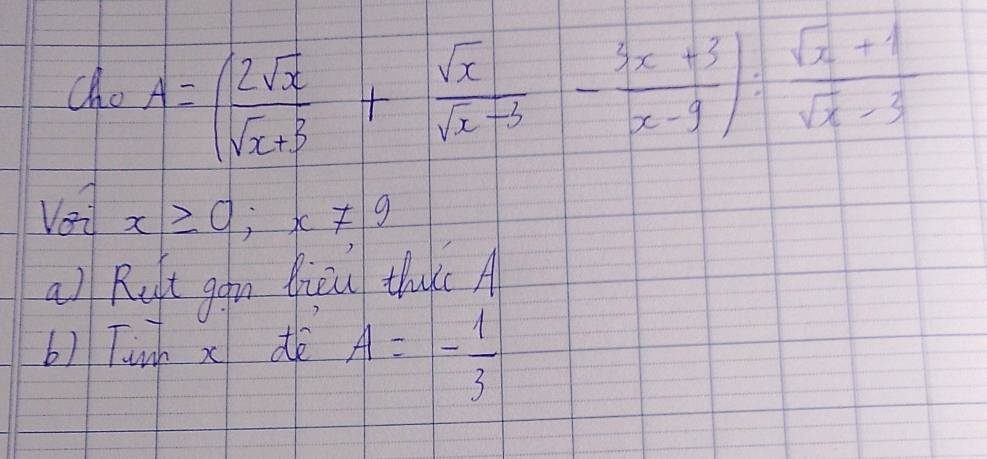 Cho A = (2√x/(√x+3) + √x/(√x-3) - (3x+3)/(x-9)) : (√x+1)/(√x-3)
Với x ≥ 0; x ≠ 9
a) Rút gọn biểu thức A
b) Tìm x để A = -1/3